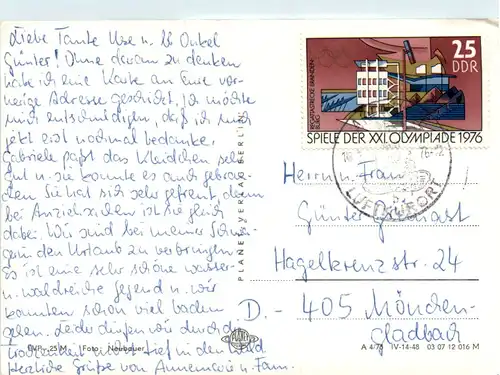 Liebe Tante Use u. lb Onkel
Günter! Ohne daran zu denken
habe ich eine Karte an Eure vor-
herige Adresse geschickt, ich möchte
mich entschuldigen, daß ich mich
jetzt erst nochmal bedanke,
Gabriele paßt das Kleidchen sehr
gut u. sie konnte es auch gebrau-
chen. Sie hat sich sehr gefreut, denn
bei Anziehsachen ist sie gleich
dabei. Wir sind bei meiner Schwä-
gerin den Urlaub zu verbringen,
es ist eine sehr schöne wasser-
u. waldreiche Gegend u. wir
konnten schon viel baden
gehen. Leider dürfen wir durch die
Trockenheit nicht tief in den Wald
Herzliche Grüße von Annemarie u. Fam.
EVP -,25 M Foto: Neubauer
PLANET-VERLAG BERLIN
PLANET
25
DDR
REGATTASTRECKE BRANDEN-
BURG
SPIELE DER XXI. OLYMPIADE 1976
LUFTKURORT
Herrn u. Frau
Günter
Hagelkreuzstr. 24
D. - 405 Mönchen-
gladbach
A 4/76 IV-14-48 03 07 12 016 M